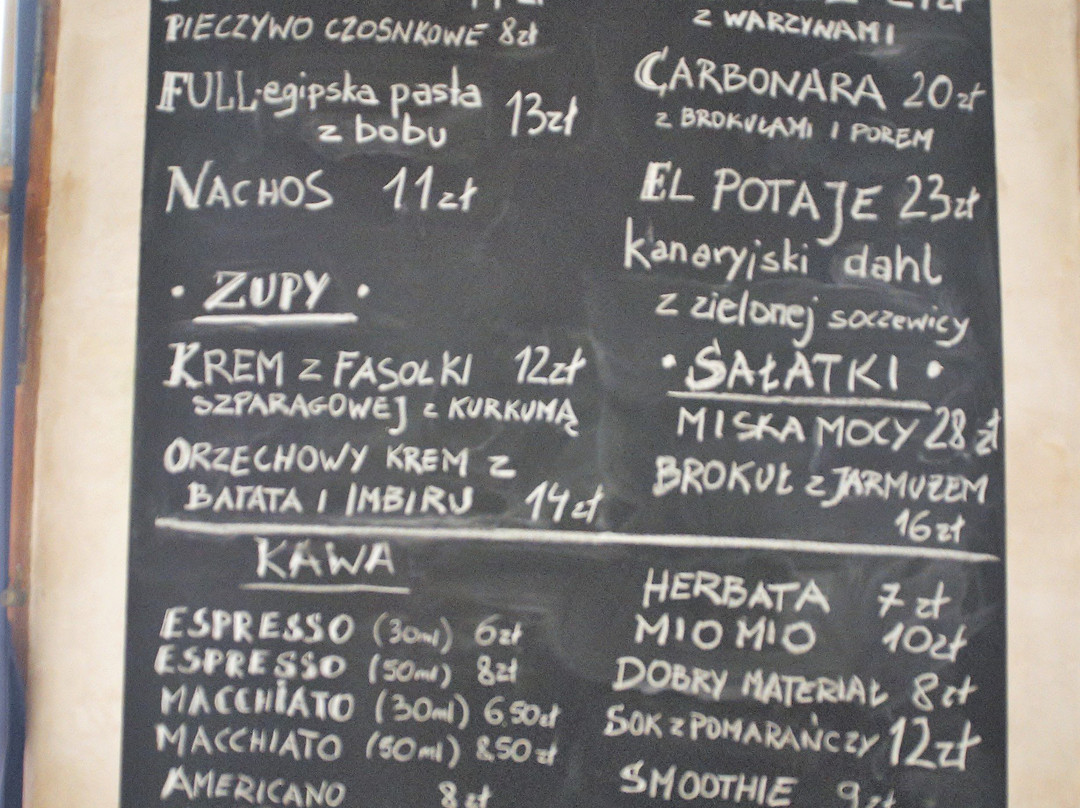 PIECZYWO CZOSNKOWE 8zł
FULL-egipska pasta
z bobu 13zł
NACHOS 11zł
• ZUPY •
KREM z FASOLKI 12zł
SZPARAGOWEJ z KURKUMĄ
ORZECHOWY KREM z
BATATA I IMBIRU 14zł
KAWA
ESPRESSO (30ml) 6zł
ESPRESSO (50ml) 8zł
MACCHIATO (30ml) 6,50zł
MACCHIATO (50ml) 8,50zł
AMERICANO 8zł
z WARZYWAMI
CARBONARA 20zł
z BROKUŁAMI I POREM
EL POTAJE 23zł
kanaryjski dahl
z zielonej soczewicy
• SAŁATKI •
MISKA MOCY 28 zł
BROKUŁ z JARMUŻEM
16zł
HERBATA 7 zł
MIO MIO 10zł
DOBRY MATERIAŁ 8zł
SOK z POMARAŃCZY 12zł
SMOOTHIE 9zł